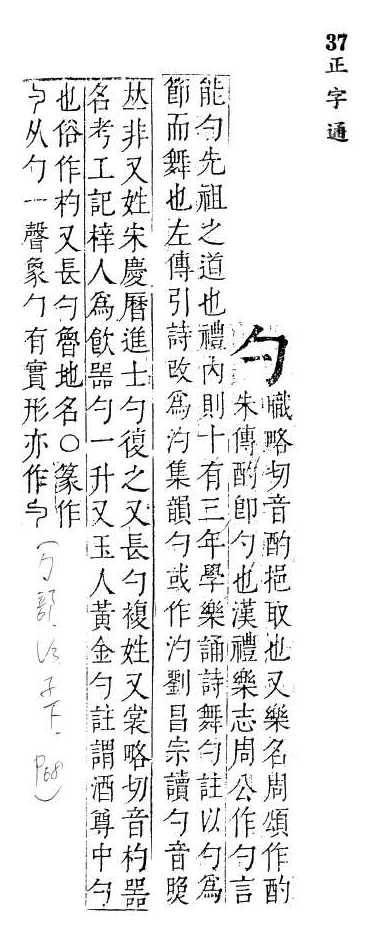 37 正字通
勺
職略切音酌挹取也又樂名周頌作酌
朱傳酌卽勺也漢禮樂志周公作勺言
能勺先祖之道也禮內則十有三年學樂誦詩舞勺註以勺爲
節而舞也左傳引詩改爲汋集韻勺或作汋劉昌宗讀勺音
非又姓宋慶曆進士勺復之又長勺複姓又裳略切音杓器
名考工記梓人爲飮器勺一升又玉人黃金勺註謂酒尊中勺
也俗作杓又長勺魯地名○篆作
从勺一聲象勺有實形亦作
(勺部 子下 P68)